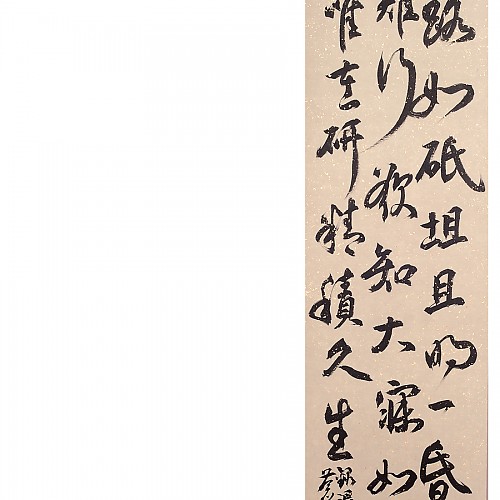 路如砥坦且明一昏
難行欲知大寐如
唯在研精積久生